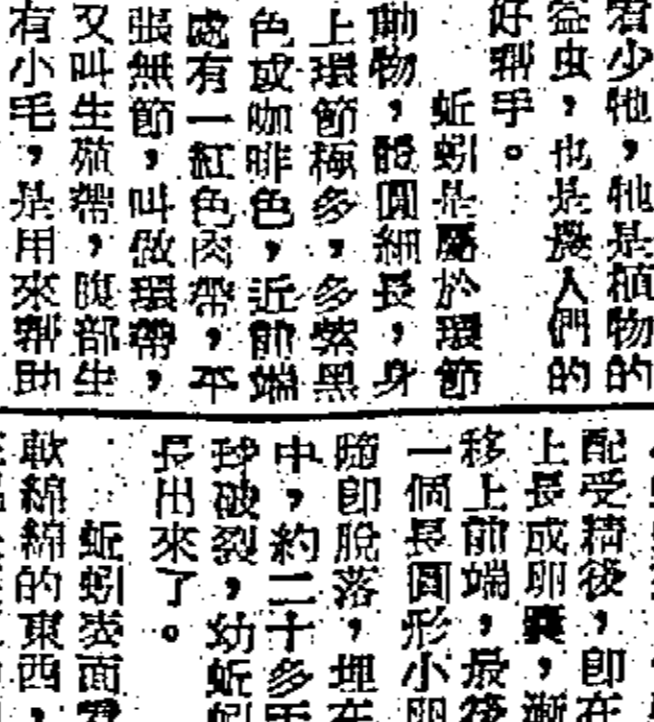 看少牠，牠是植物的
益虫，也是農人們的
好幫手。
蚯蚓是屬於環節
動物，體圓細長，身
上環節極多，多紫黑
色或咖啡色，近前端
處有一紅色肉帶，平
張無節，叫做環帶，
又叫生殖帶，腹部生
有小毛，是用來幫助
配受精後，即在
上長成卵囊，漸
移上前端，最後
一個長圓形小卵
隨即脫落，埋在
中，約二十多天
球破裂，幼蚯蚓
長出來了。
蚯蚓表面看
軟綿綿的東西，